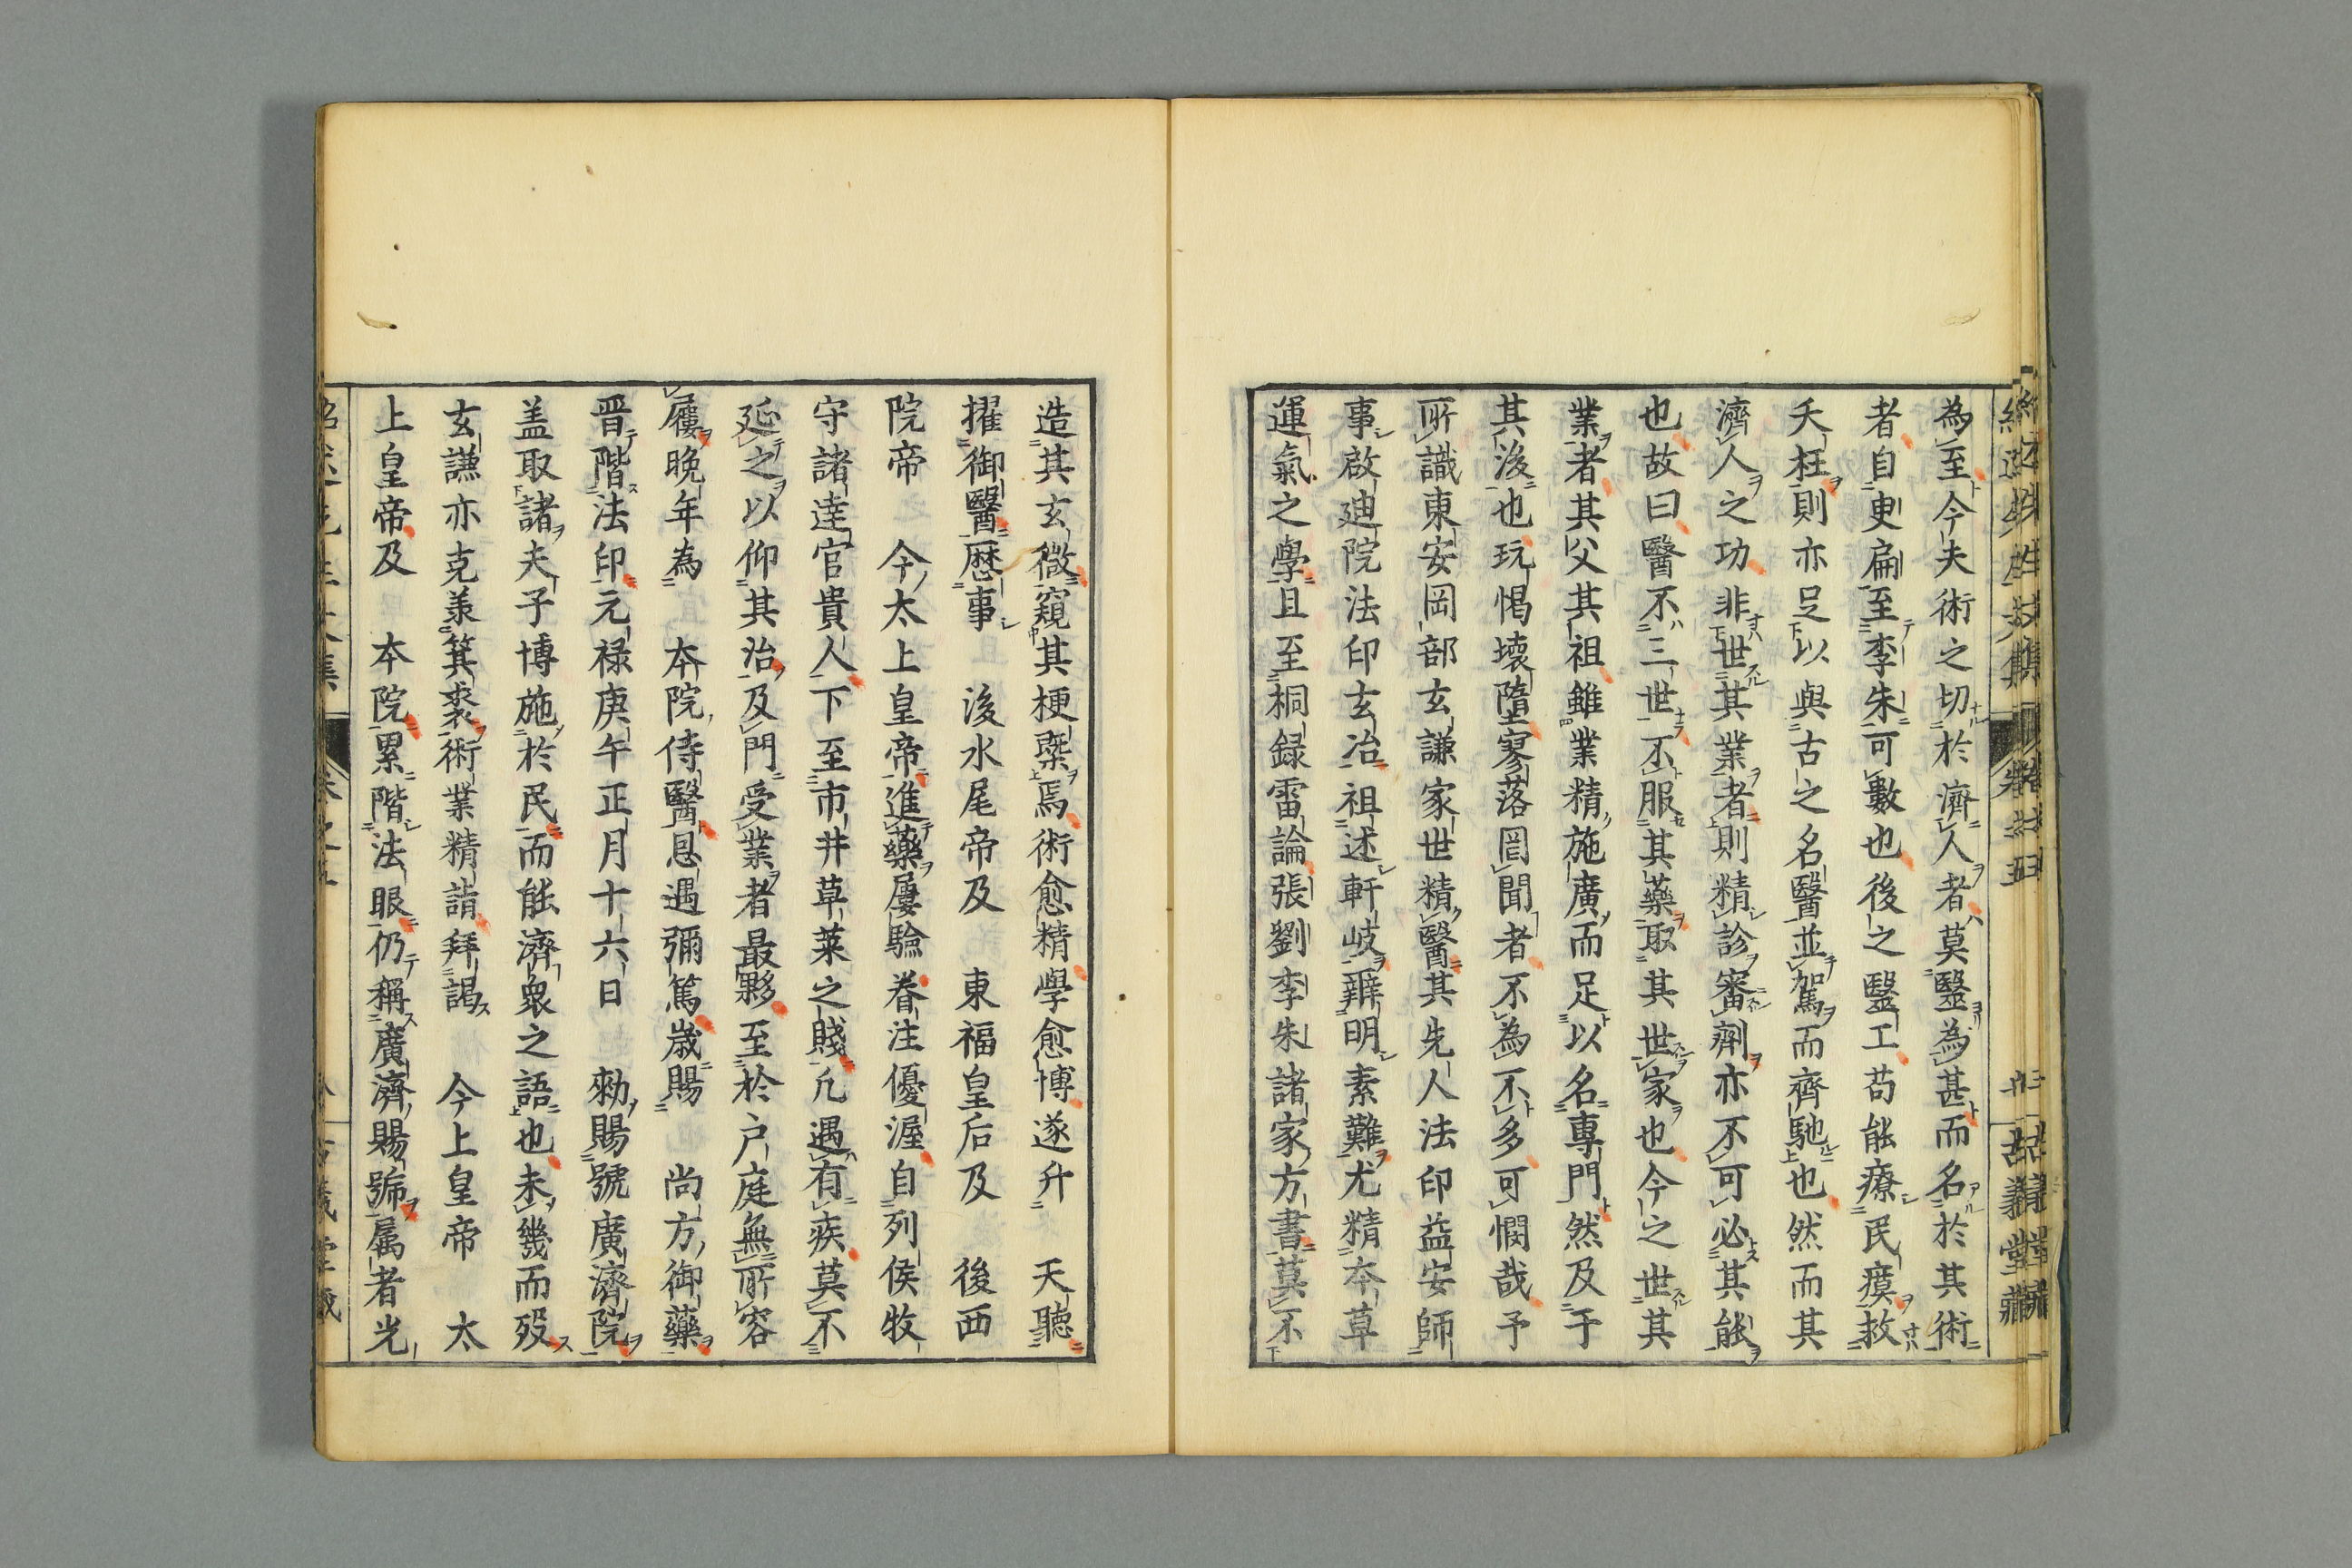 為至今夫術之切於濟人者莫毉為甚而名於其術
者自史扁至李朱可數也後之毉工苟能療民瘼救
夭枉則亦足以與古之名醫並駕而齊馳也然而其
濟人之功非世其業者則精診審劑亦不可必其能
也故曰醫不三世不服其藥取其世家也今之世其
業者其父其祖雖業精施廣而足以名專門然及于
其後也玩愒壞隳寥落罔聞者不為不多可憫哉予
所識東安岡部玄謙家世精醫其先人法印益安師
事啟廸院法印玄冶祖述軒岐辨明素難尤精本草
運氣之學且至桐録雷論張劉李朱諸家方書莫不
造其玄微窺其梗槩焉術愈精學愈博遂升　天聽
擢御醫歷事　後水尾帝及　東福皇后及　後西
院帝　今太上皇帝進藥屢驗眷注優渥自列侯牧
守諸達官貴人下至市井草萊之賤凢遇有疾莫不
延之以仰其治及門受業者最夥至於户庭無所容
屨晚年為　本院侍醫恩遇彌篤歲賜　尚方御藥
晋階法印元禄庚午正月十六日　勑賜號廣濟院
盖取諸夫子博施於民而能濟衆之語也未幾而歿
玄謙亦克羕箕裘術業精詣拜謁　今上皇帝　太
上皇帝及　本院累階法眼仍稱廣濟賜號属者光